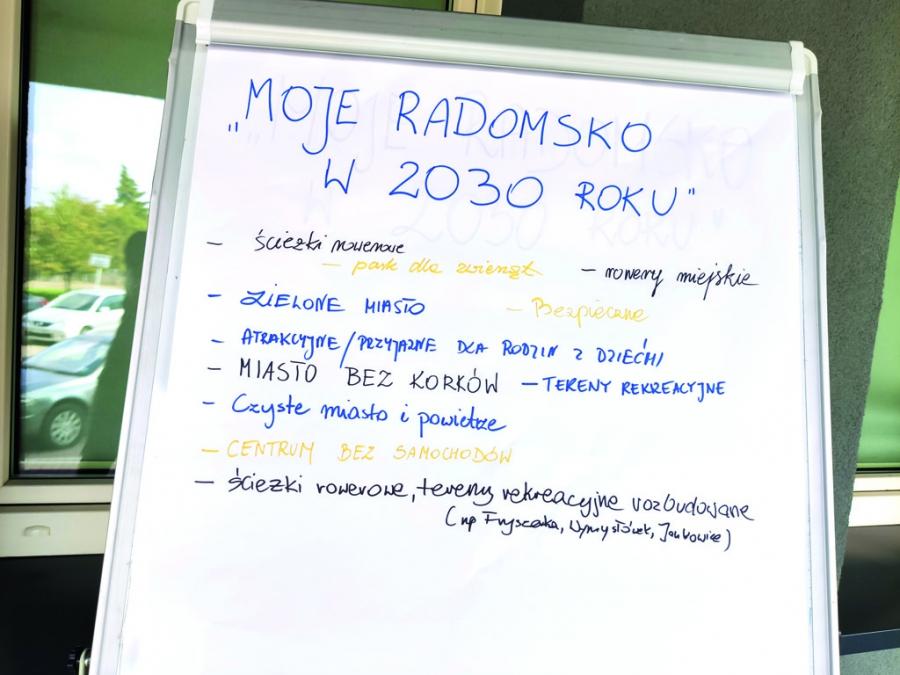 „MOJE RADOMSKO
W 2030 ROKU"
– ścieżki rowerowe
– park dla zwierząt – rowery miejskie
– ZIELONE MIASTO – Bezpieczne
– ATRAKCYJNE/PRZYJAZNE DLA RODZIN Z DZIEĆMI
– MIASTO BEZ KORKÓW – TERENY REKREACYJNE
– Czyste miasto i powietrze
– CENTRUM BEZ SAMOCHODÓW
– ścieżki rowerowe, tereny rekreacyjne rozbudowane
(np Fryszerka, Wymysłówek, Jankowice)